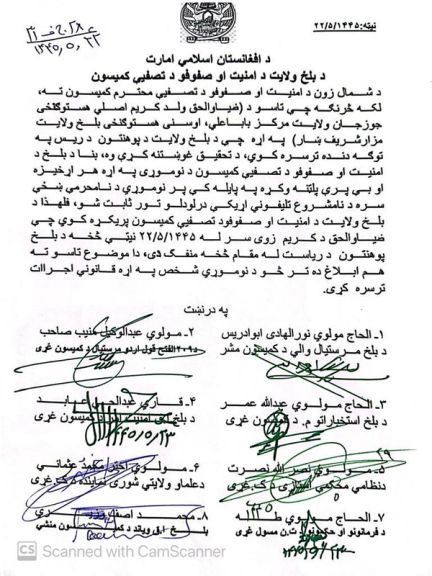 نیټه:۲۲/۵/۱۴۴۵
۱۴۴۵،۵،۲۲
د افغانستان اسلامي امارت
د بلخ ولایت د امنیت او صفوفو د تصفیې کمیسون
د شمال زون د امنیت او صفوفو د تصفیې محترم کمیسون ته،
لکه څرنګه چې تاسو د (ضیاوالحق ولد کریم اصلي هستوګنځی
جوزجان ولایت مرکز باباعلي، اوسنی هستوګنځی بلخ ولایت
مزارشریف ښار) په اړه چې د بلخ ولایت د پوهنتون د ریس په
توګه دنده ترسره کوي، د تحقیق غوښتنه کړې وه، بنا د بلخ د
امنیت او صفوفو د تصفیې کمیسون د نوموړي په اړه هر اړخیزه او
بې پرې پلټنه وکړه په پایله کې پر نوموړي د نامحرمې ښځې
سره د نامشروع تلیفوني اړیکې درلودلو تور ثابت شو، فلهذا د
بلخ ولایت د امنیت او صفوفود تصفیې کمیسون پریکړه کوي چې
ضیاوالحق د کریم زوی سر له ۲۲/۵/۱۴۴۵ نیټې څخه د بلخ
پوهنتون د ریاست له مقام څخه منفک دی، دا موضوع تاسو ته
هم ابلاغ ده تر څو د نوموړي شخص په اړه قانوني اجراات
ترسره کړی.
په درنښت
۱- الحاج مولوي نورالهادی ابوادریس
د بلخ مرستیال والي د کمیسون مشر
۲- مولوي عبدالوکیل منیب صاحب
د۲۰۹الفتح قول اردو مرستیال د کمیسون غړی
۳- الحاج مولوي عبدالله عمر
د بلخ استخباراتو م. د کمیسون غړی
۴- قاري عبدالحی عابد
د بلخ امنیت کمیسون غړی
۵- مولوي نصر الله نصرت
دنظامي محکمې د ک.غړی
۶- مولوي محمد عثماني
دعلماو ولایتي شوری نماینده د ک.غړی
۷- الحاج مولوي طه
د فرمانونو او حکمونو ت.ن مسول غړی
۸- محمد
بلخ کمیسون منشي
CS Scanned with CamScanner